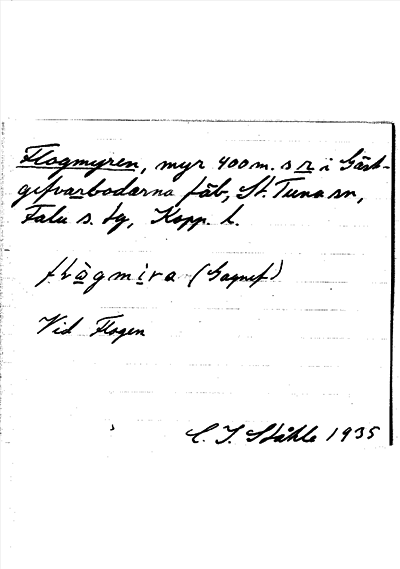 Flogmyren, myr 400 m. s r i Gäst-
gifvarbodarna fäb, St. Tuna sn,
Falu s. tg, Kopp. l.
flògmira (Gagnef)
Vid Flogen
C. I. Ståhle 1935